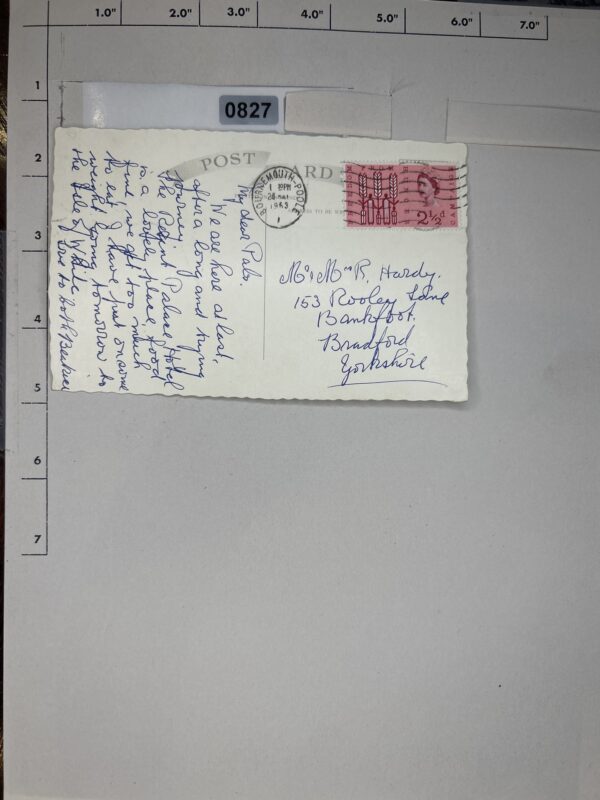 1.0" 2.0" 3.0" 4.0" 5.0" 6.0" 7.0"
1
2
3
4
5
6
7
0827
POST CARD
BOURNEMOUTH-POOLE
1 PM
28 MAY
1963
2½d
My dear Pals.
We are here at last,
after a long and tiring
journey.
The Regent Palace Hotel
is a lovely place, food
fine we get too much
to eat, I have put on some
weight. Going tomorrow to
the Isle of White
Love to both Beatrice
Mr & Mrs R. Hardy.
153 Rooley Lane
Bankfoot.
Bradford
Yorkshire